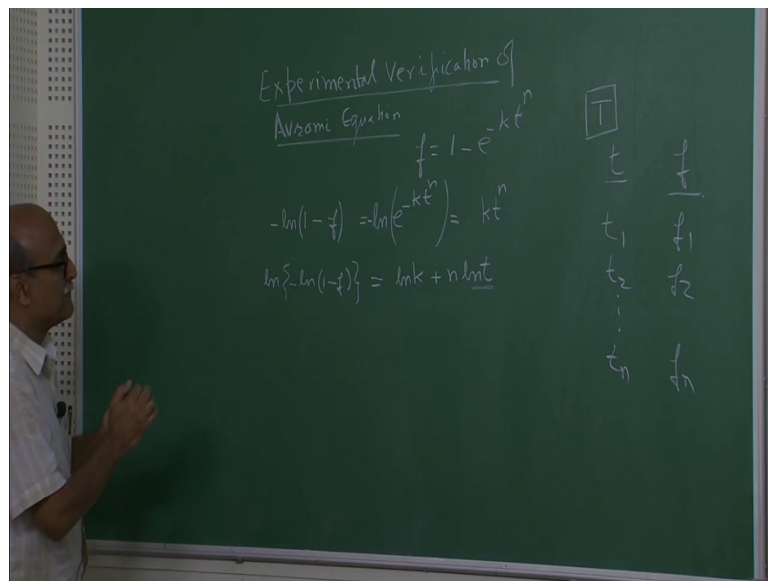 Experimental Verification of
Avrami Equation
f = 1 - e^{-kt^n}
-ln(1-f) = -ln(e^{-kt^n}) = kt^n
ln{-ln(1-f)} = lnk + n lnt
T
t f
t₁ f₁
t₂ f₂
⋮
tₙ fₙ